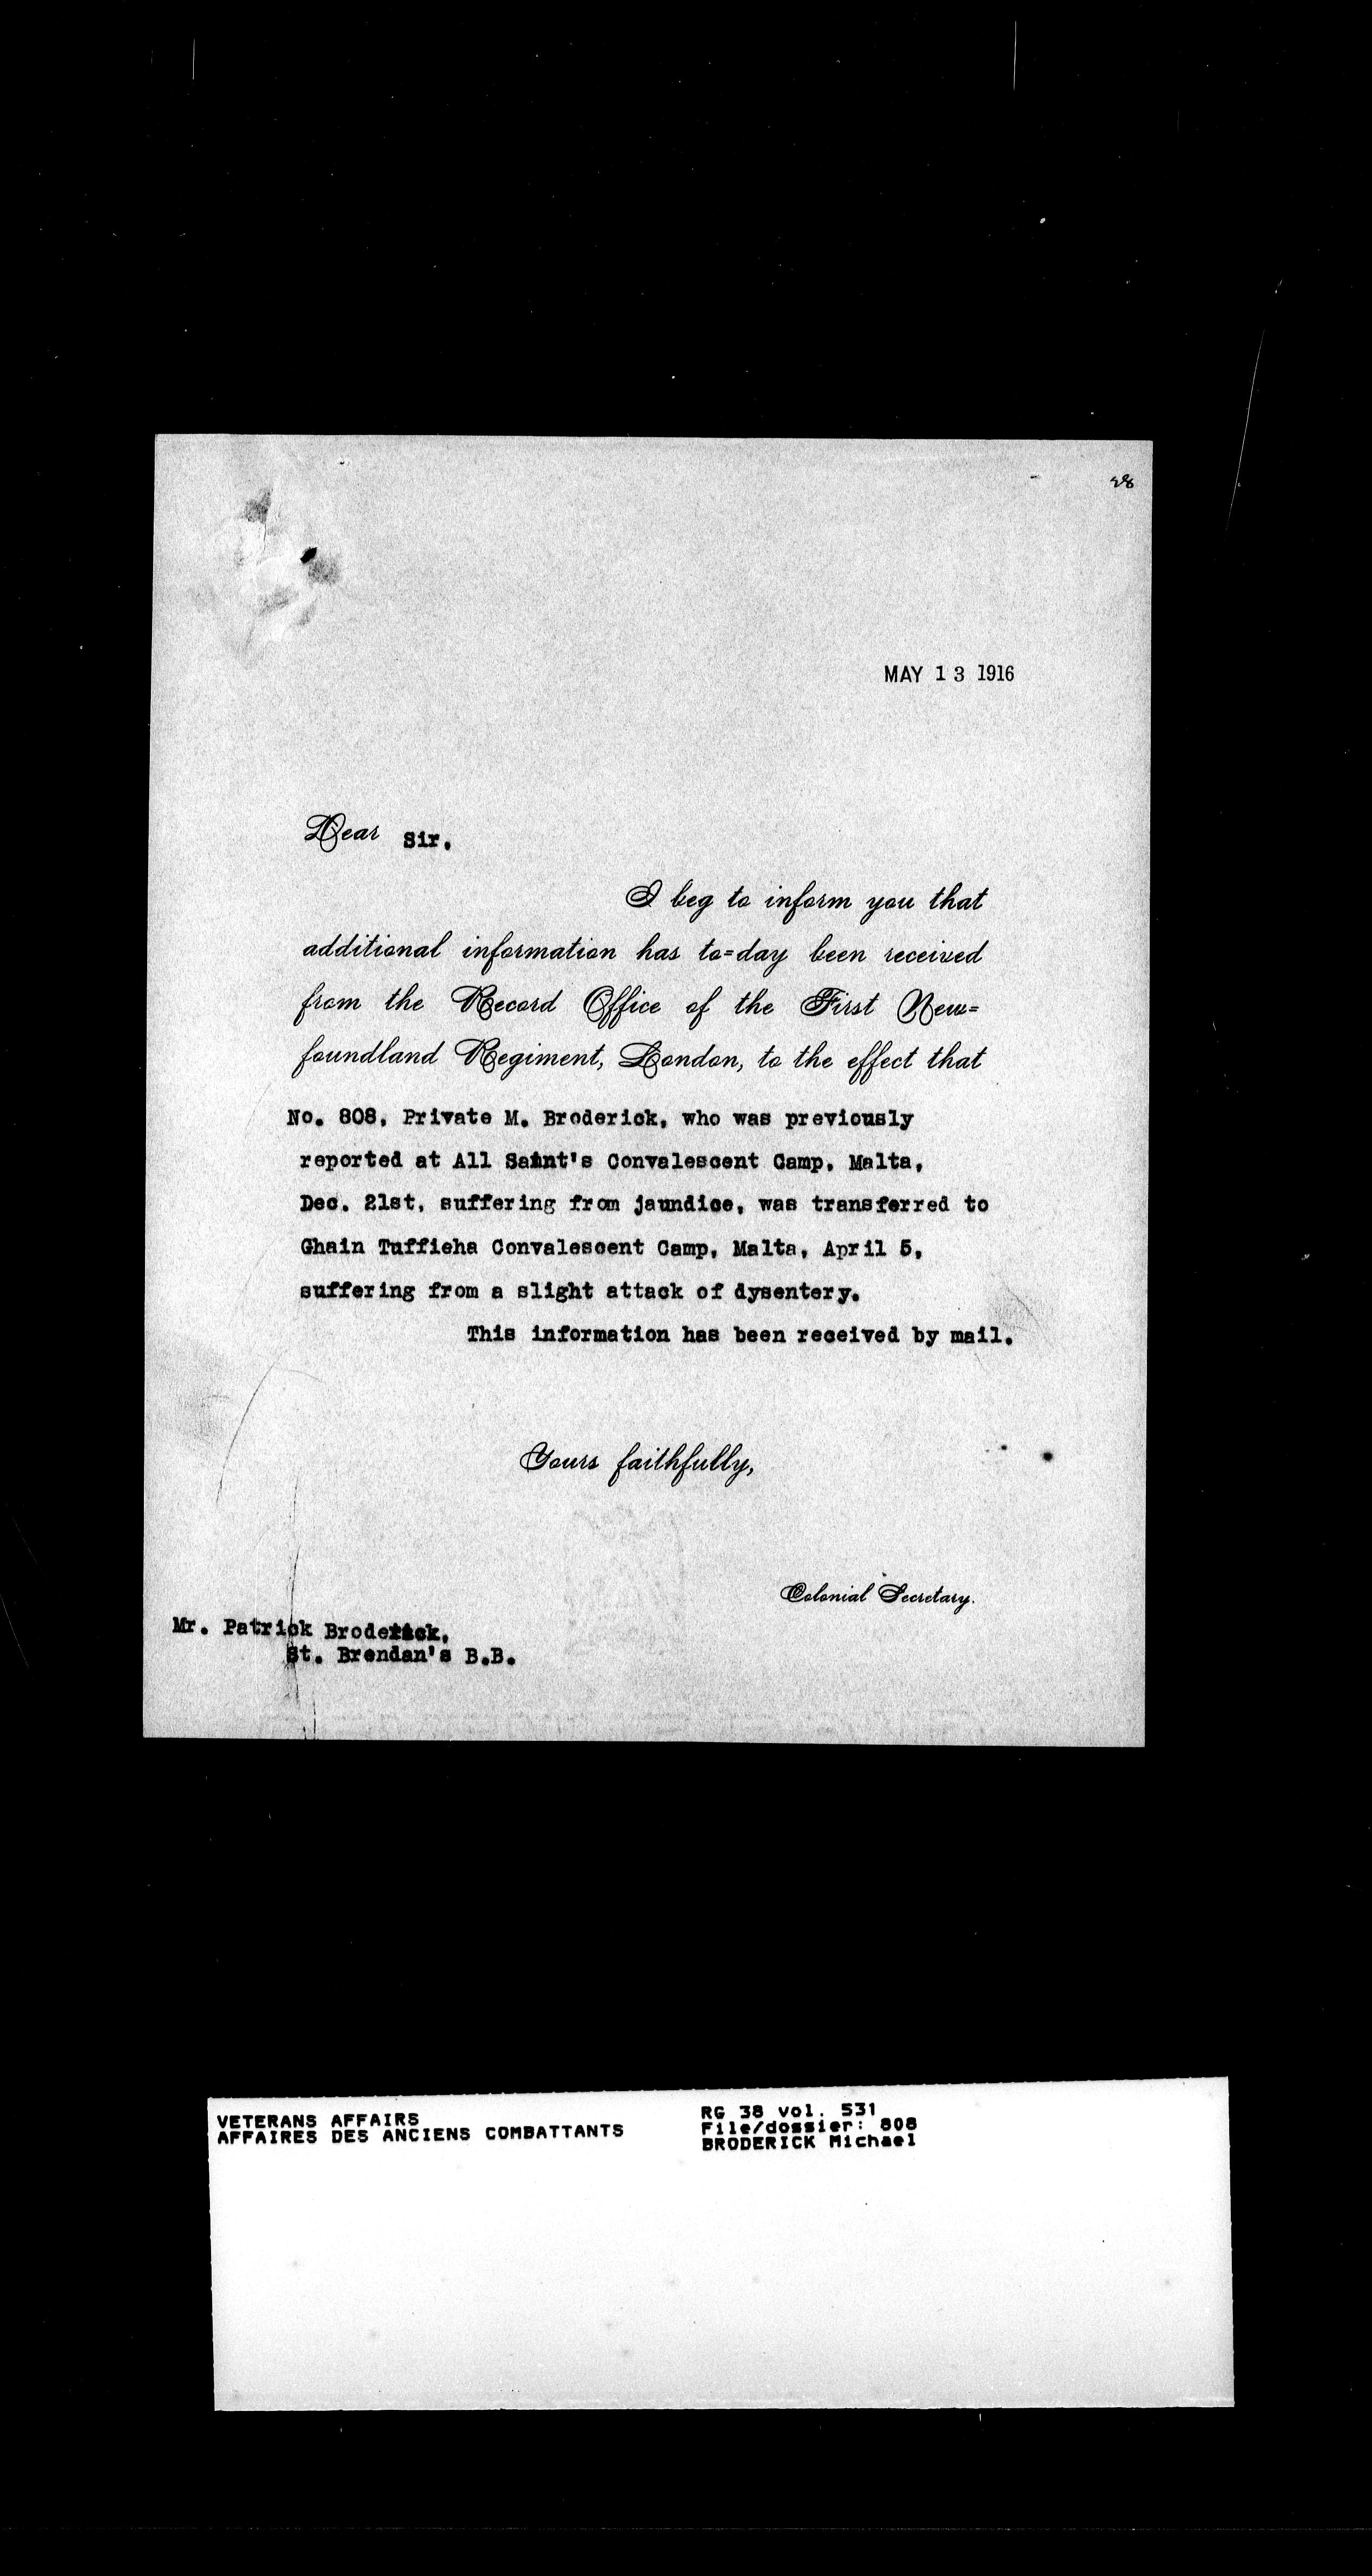 MAY 13 1916
Dear Sir.
I beg to inform you that
additional information has to=day been received
from the Record Office of the First New=
foundland Regiment, London, to the effect that
No. 808, Private M. Broderick, who was previously
reported at All Saint's Convalescent Camp, Malta,
Dec. 21st, suffering from jaundice, was transferred to
Ghain Tuffieha Convalescent Camp, Malta, April 5,
suffering from a slight attack of dysentery.
This information has been received by mail.
Yours faithfully,
Colonial Secretary.
Mr. Patrick Broderick,
St. Brendan's B.B.
VETERANS AFFAIRS
AFFAIRES DES ANCIENS COMBATTANTS
RG 38 vol. 531
File/dossier: 808
BRODERICK Michael